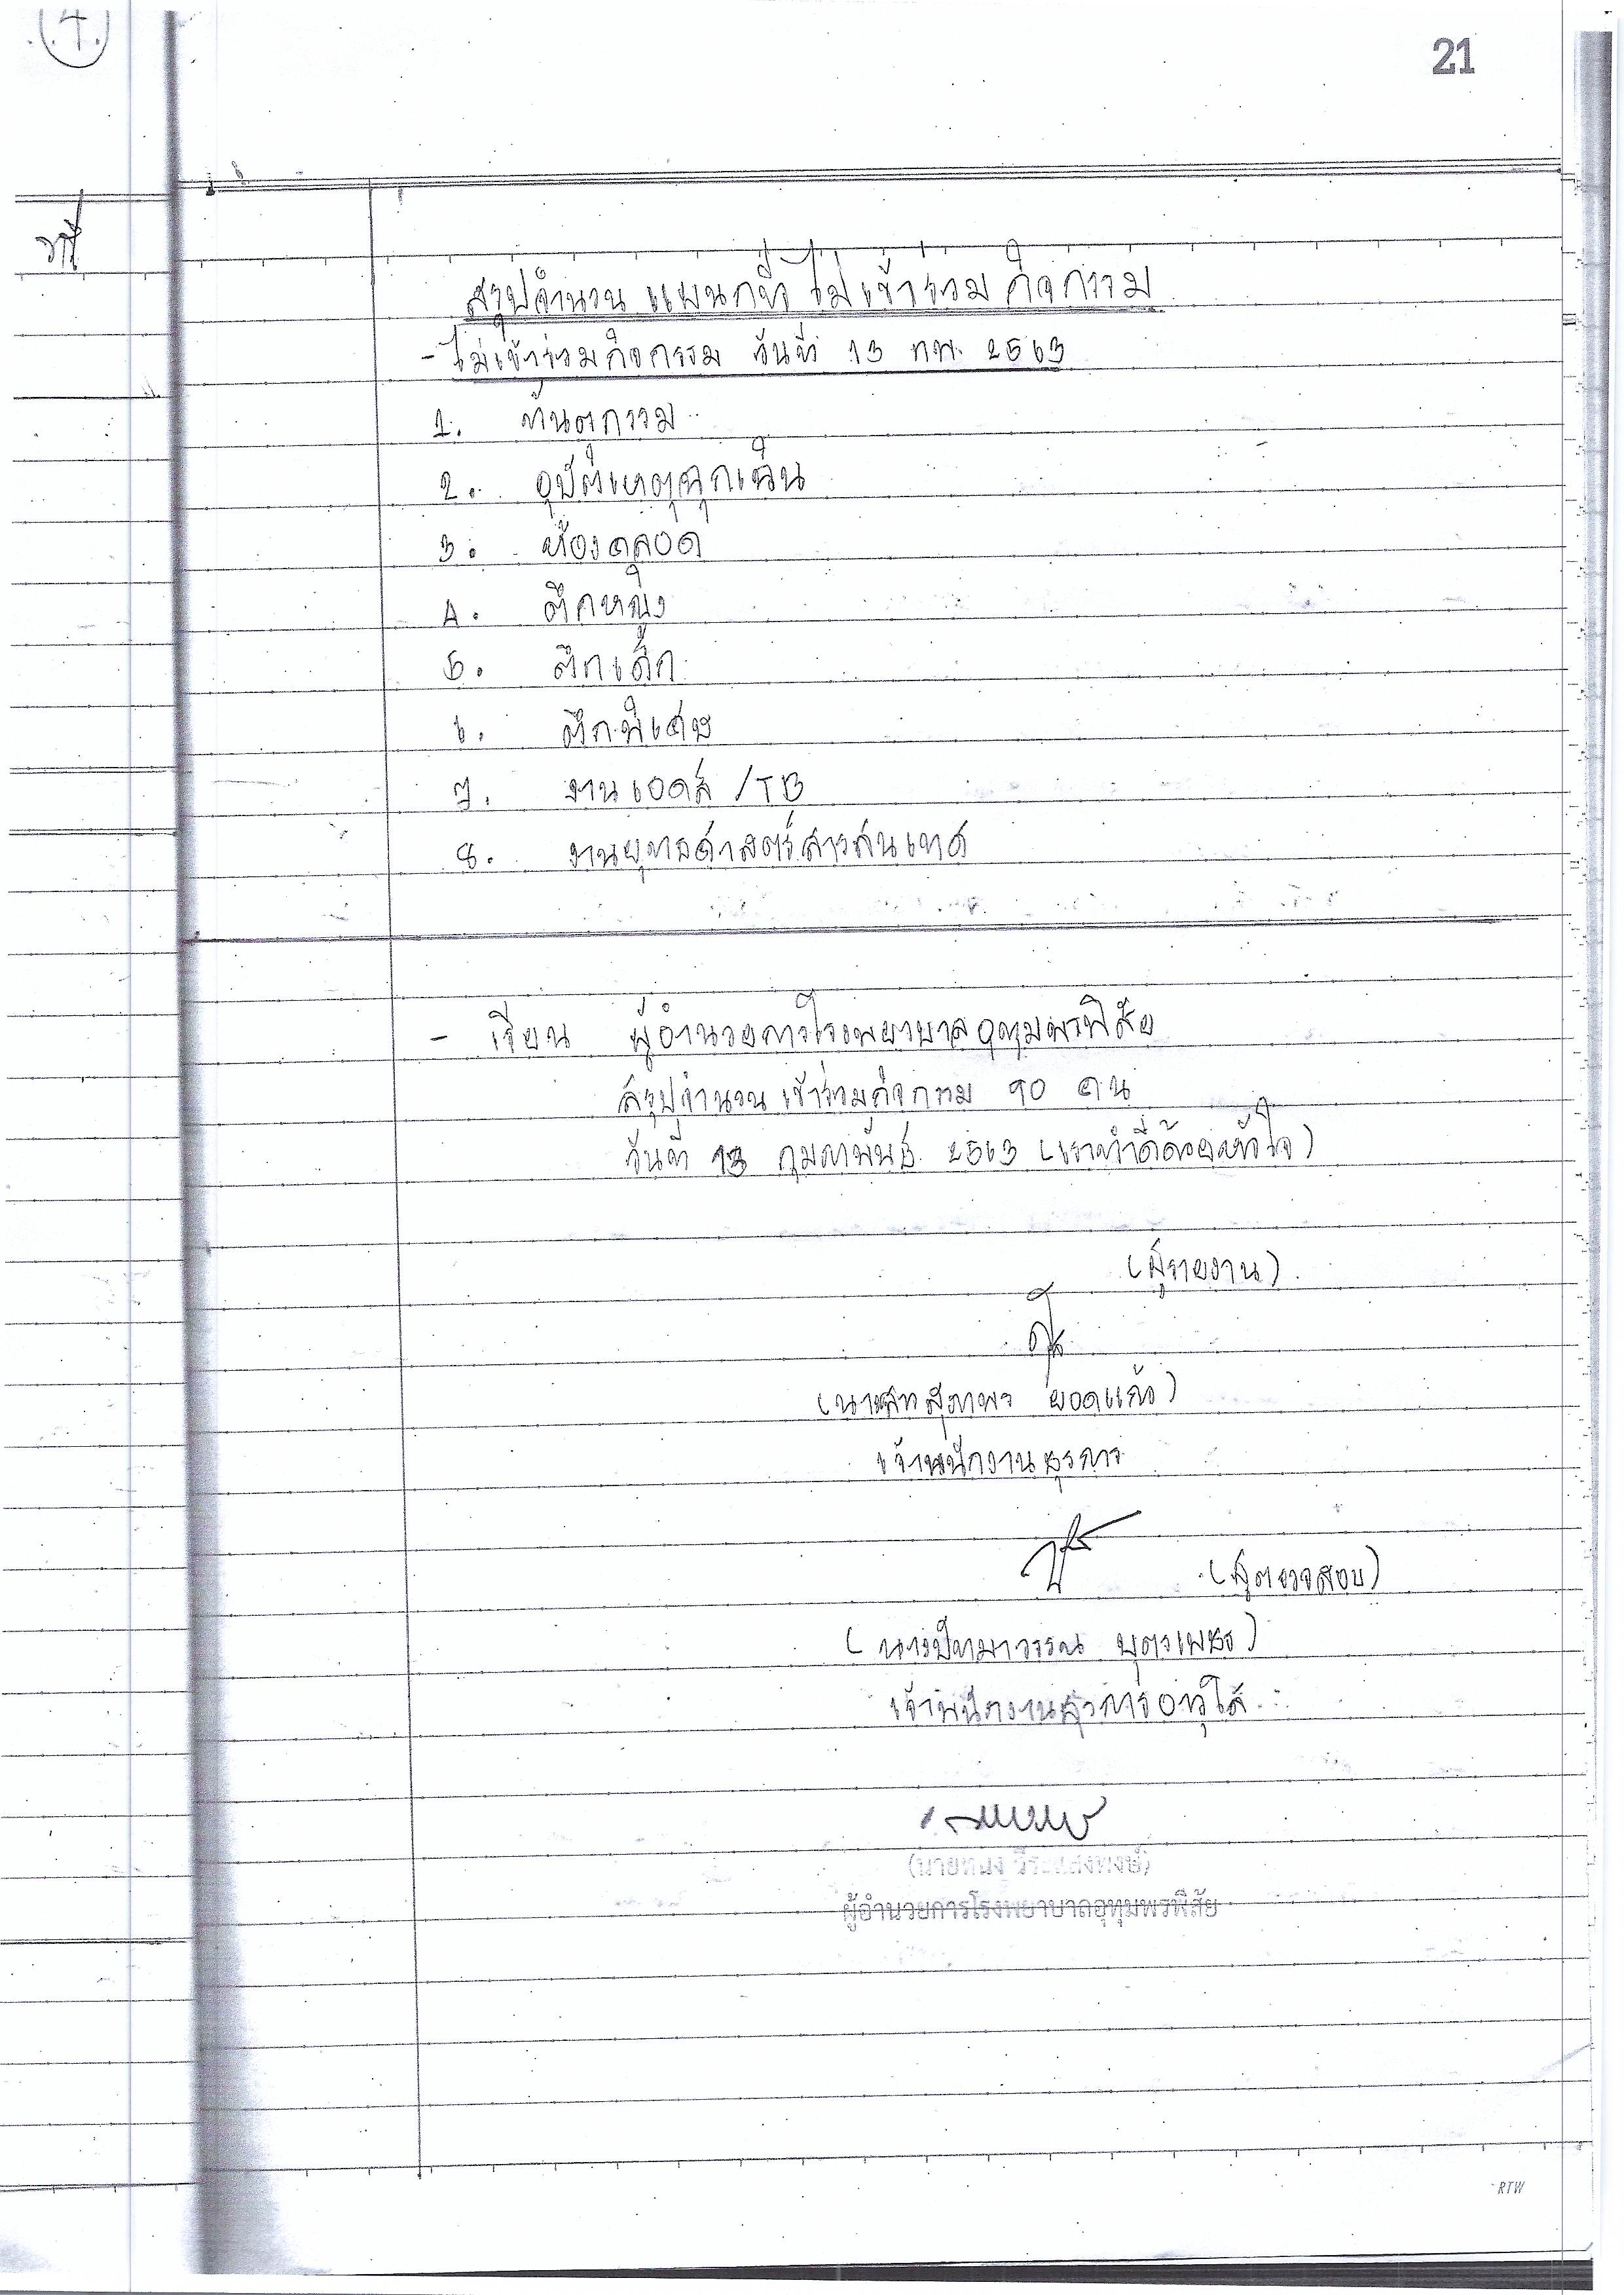 4.
21
สรุปจำนวน แผนกที่ ไม่เข้าร่วม กิจกรรม
- ไม่เข้าร่วมกิจกรรม วันที่ 13 กพ. 2563
1. ทันตกรรม
2. อุบัติเหตุฉุกเฉิน
3. ห้องคลอด
4. ตึกหญิง
5. ตึกเด็ก
6. ตึกพิเศษ
7. งานเอดส์ /TB
8. งานยุทธศาสตร์สารสนเทศ
- เรียน ผู้อำนวยการโรงพยาบาลอุทุมพรพิสัย
สรุปจำนวน เข้าร่วมกิจกรรม 90 คน
วันที่ 13 กุมภาพันธ์ 2563 (เราทำดีด้วยหัวใจ)
(ผู้รายงาน)
(นางสาวสุภาพร ยอดแก้ว)
เจ้าพนักงานธุรการ
(ผู้ตรวจสอบ)
(นางปัทมาวรรณ บุตรเพชร)
เจ้าพนักงานธุรการอาวุโส
(นายทนง
ผู้อำนวยการโรงพยาบาลอุทุมพรพิสัย
RTW